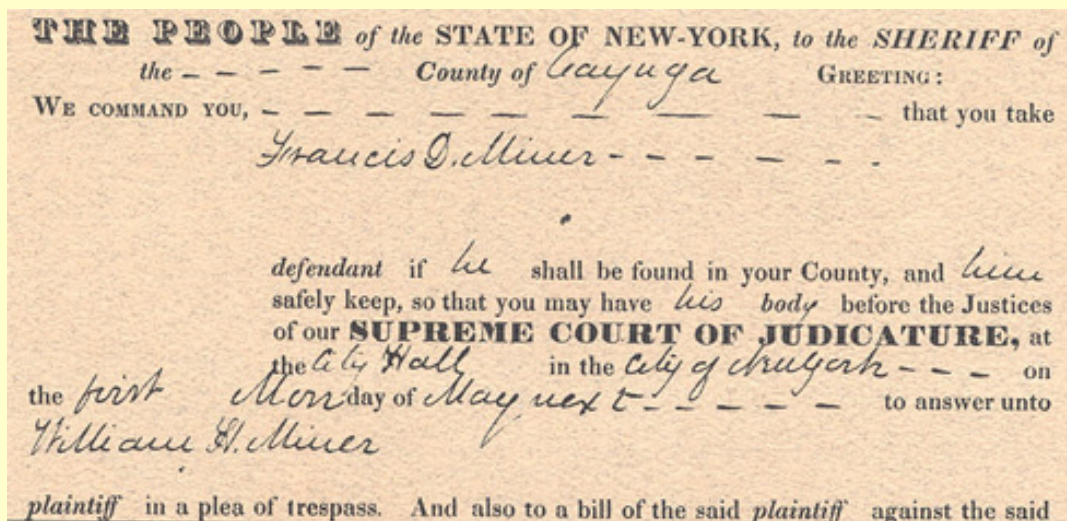 THE PEOPLE of the STATE OF NEW-YORK, to the SHERIFF of
the - - - - - County of Cayuga GREETING:
WE COMMAND YOU, - - - - - - - - that you take
Francis D. Miner - - - - - -
defendant if he shall be found in your County, and him
safely keep, so that you may have his body before the Justices
of our SUPREME COURT OF JUDICATURE, at
the City Hall in the City of New York - - - on
the first Monday of May next - - - - - - to answer unto
William H. Miner
plaintiff in a plea of trespass. And also to a bill of the said plaintiff against the said